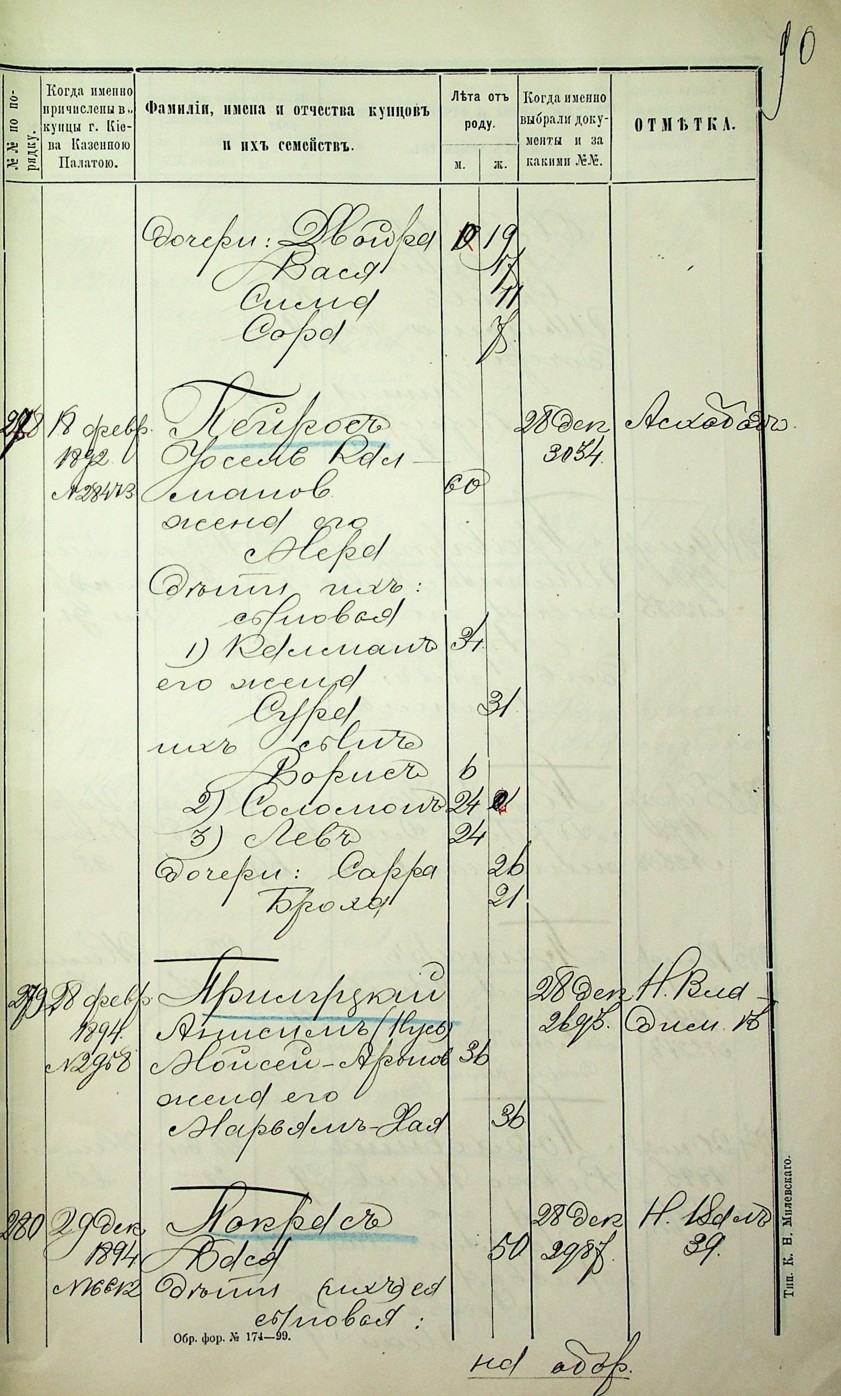 90
№№ по порядку.
Когда именно причислены въ купцы г. Кіева Казенною Палатою.
Фамиліи, имена и отчества купцовъ и ихъ семействъ.
Лѣта отъ роду.
м.
ж.
Когда именно выбрали документы и за какими №№.
ОТМѢТКА.
дочери: Двойра 19
Вася 17
Сима 11
Сора 7
278 18 февр. Пейросъ 28 дек Асхабадъ.
1892 Іосель Кал- 3034
№28473 мановъ 60
жена его
Мера
Дѣти ихъ:
сыновья
1) Калманъ 34
его жена
Сура 31
ихъ сынъ
Борисъ 6
2) Соломонъ 24
3) Левъ 24
Дочери: Сарра 26
Броха 21
279 28 февр Прилуцкий 28 дек Н. Вла-
1894. Анисимъ (Нусь) 2693. дим

№2958 Мойсей-Ароновъ 36
жена его
Марьямъ-Хая 36
280 29 дек Покрасъ 28 дек Н. Валъ
1894 Бася 50 2987. 39.
№16612 Дѣти (ихъ) ея
сыновья:
Обр. фор. № 174—99.
на обор.
Тип. К. Н. Милевскаго.